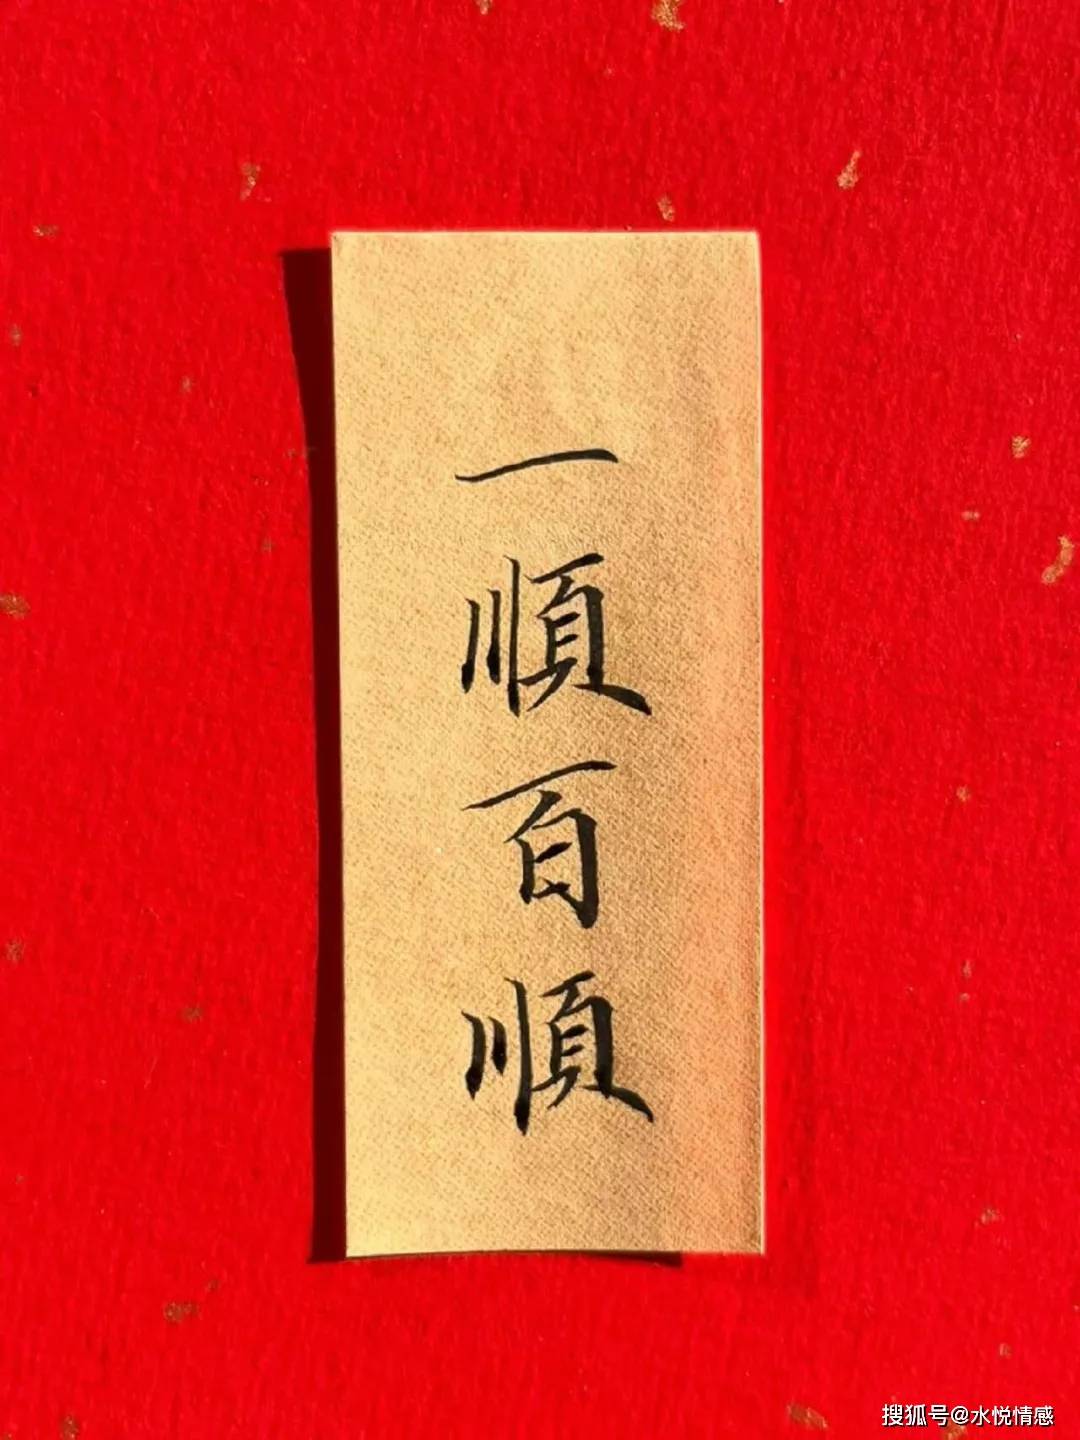 一順百順
搜狐号@水悦情感